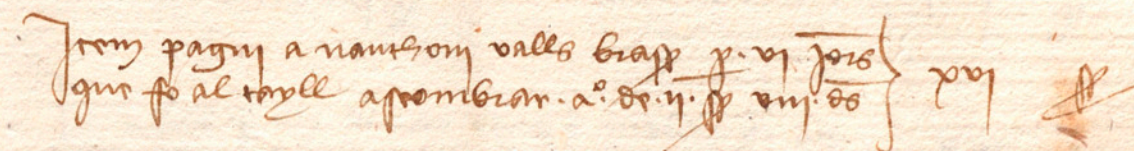 Item pagui a nanthoni valls brasser per. vi. jors
que fo al tayll a scombrar. a.º de. ii. ss viii. ds xvi ss